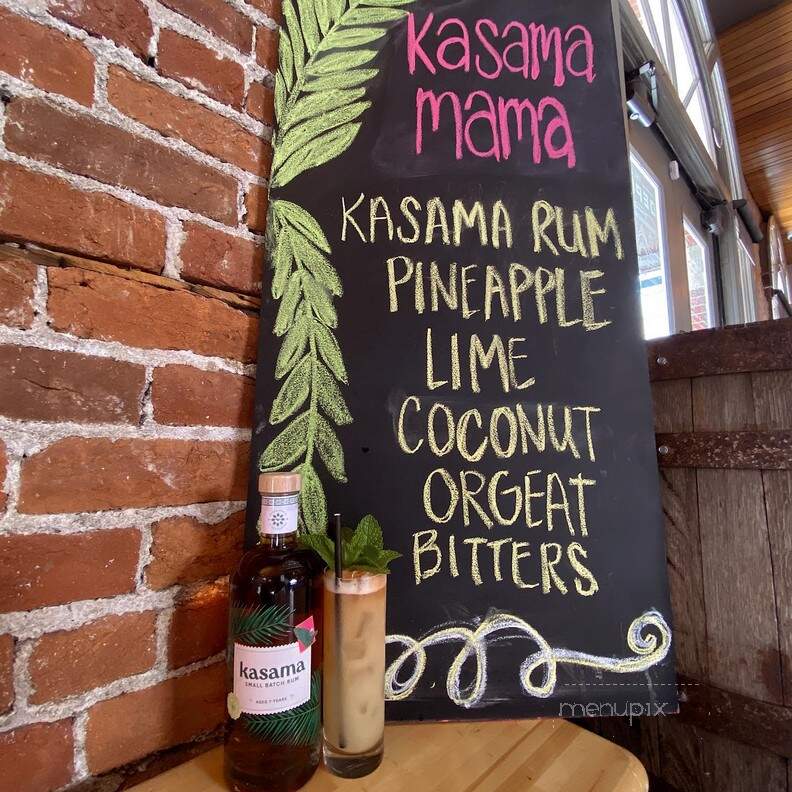 Kasama
mama
KASAMA RUM
PINEAPPLE
LIME
COCONUT
ORGEAT
BITTERS
kasama
SMALL BATCH RUM
AGED 7 YEARS
menupix